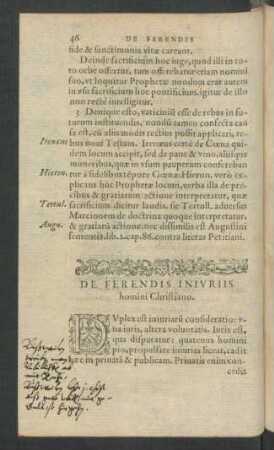 46 DE FERENDIS
fide & sanctimonia vitæ careant.
Deinde sacrificium hoc iuge, quod illi in to
to orbe offertur, tum offerebatur etiam nomini
suo, vt loquitur Propheta: nondum erat autem
in vsu sacrificium hoc pontificium. igitur de illo
non recte intelligitur.
3 Denique esto, vaticiniū esse de rebus in fu
turum instituendis, nondū tamen confecta cau
sa est, cū aliis modis rectius possit applicari, re-
Irenæus bus noui Testam. Irenæus certè de Cœna qui
dem locum accipit, sed de pane & vino, aliisque
muneribus, quæ in vsum pauperum confereban
Hieron. tur à fidelibus tēpore Cœnæ. Hieron. vero ex
plicans hūc Prophetæ locum, verba illa de pre
cibus & gratiarum actione interpretatur, quæ
Tertul. sacrificium dicitur laudis: sic Tertull. aduersus
Marcionem de doctrina quoque interpretatur,
Augu. & gratiarū actione. nec dissimilis est Augustini
sententia lib. 2. cap. 86. contra literas Petiliani.
DE FERENDIS INIVRIIS
homini Christiano.
DVplex est iniuriarū consideratio: v-
na iuris, altera voluntatis. Iuris est,
qua disputatur: quatenus homini
pio, propulsare iniurias liceat, cadit
hæc in priuatā & publicam. Priuatis enim con-
cedit